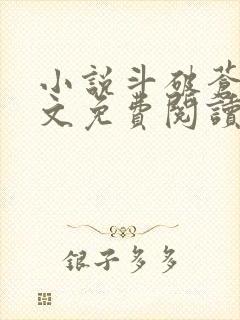 小説斗破蒼
文免費閱讀
銀子多多